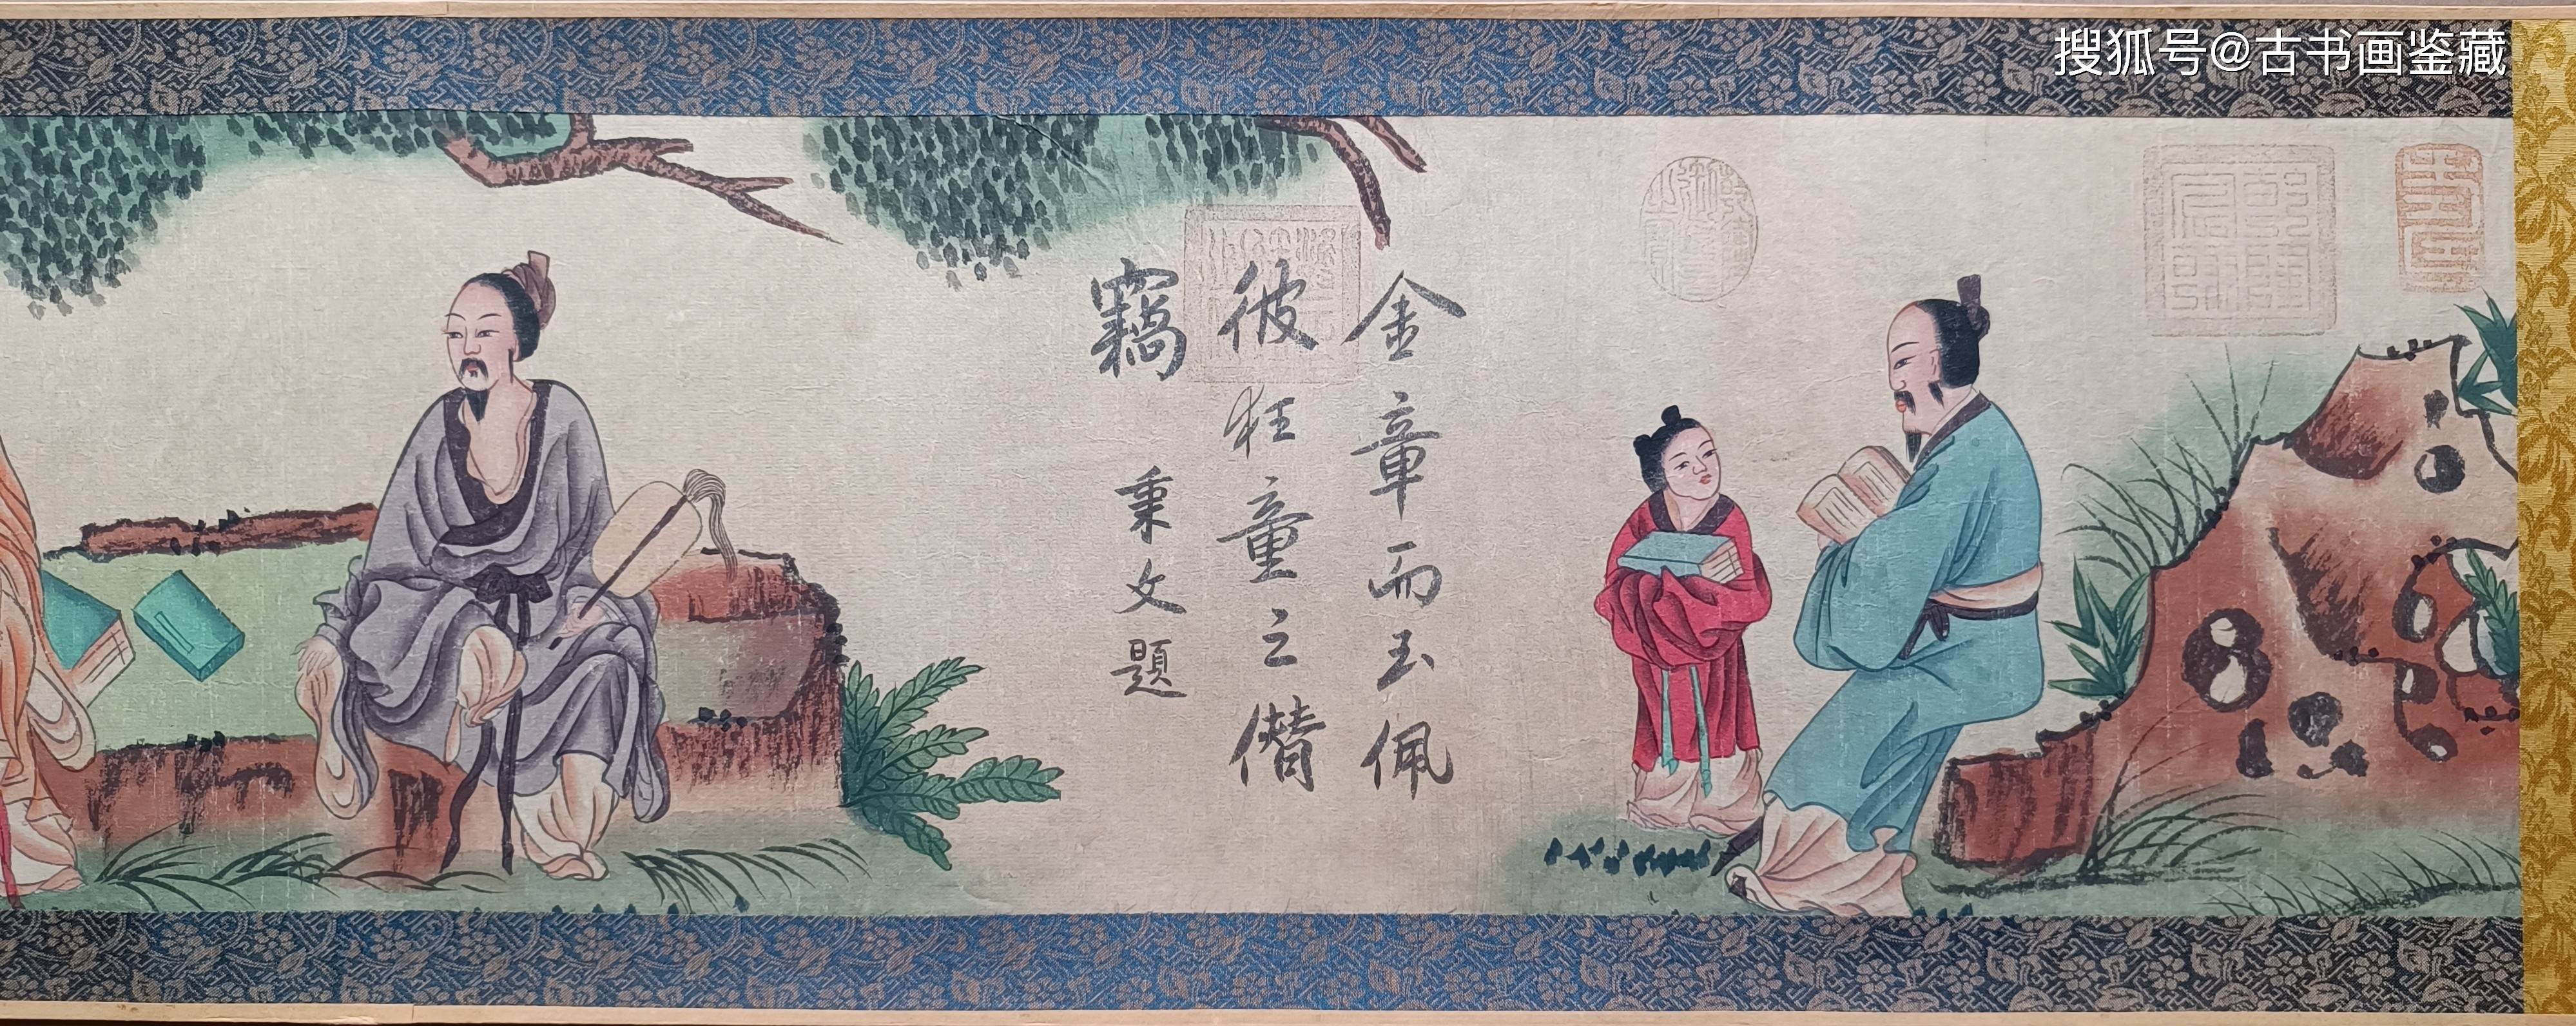 搜狐号@古书画鉴藏
金章而玉佩
彼狂童之僭
竊
秉文題